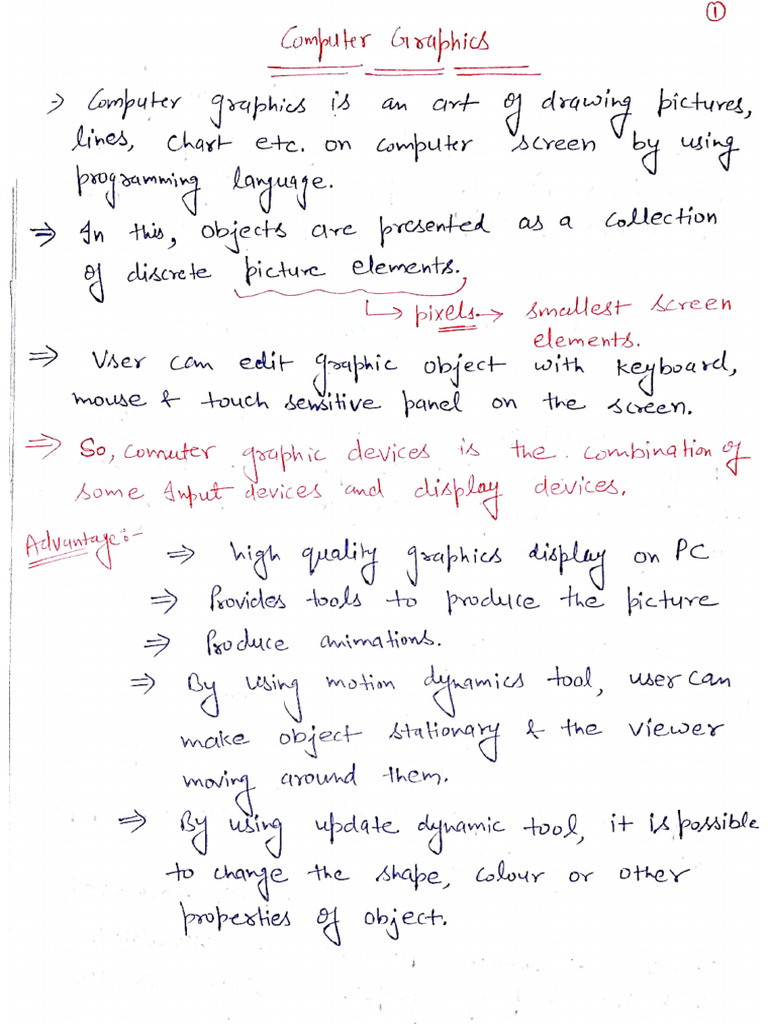 ①
Computer Graphics
→ Computer graphics is an art of drawing pictures,
lines, chart etc. on computer screen by using
programming language.
⇒ In this, objects are presented as a collection
of discrete picture elements.
↳ pixels → smallest screen
elements.
⇒ User can edit graphic object with keyboard,
mouse & touch sensitive panel on the screen.
⇒ So, comuter graphic devices is the combination of
some Input devices and display devices.
Advantage:-
⇒ high quality graphics display on PC
⇒ Provides tools to produce the picture
⇒ Produce animations.
⇒ By using motion dynamics tool, user can
make object stationary & the viewer
moving around them.
⇒ By using update dynamic tool, it is possible
to change the shape, colour or other
properties of object.